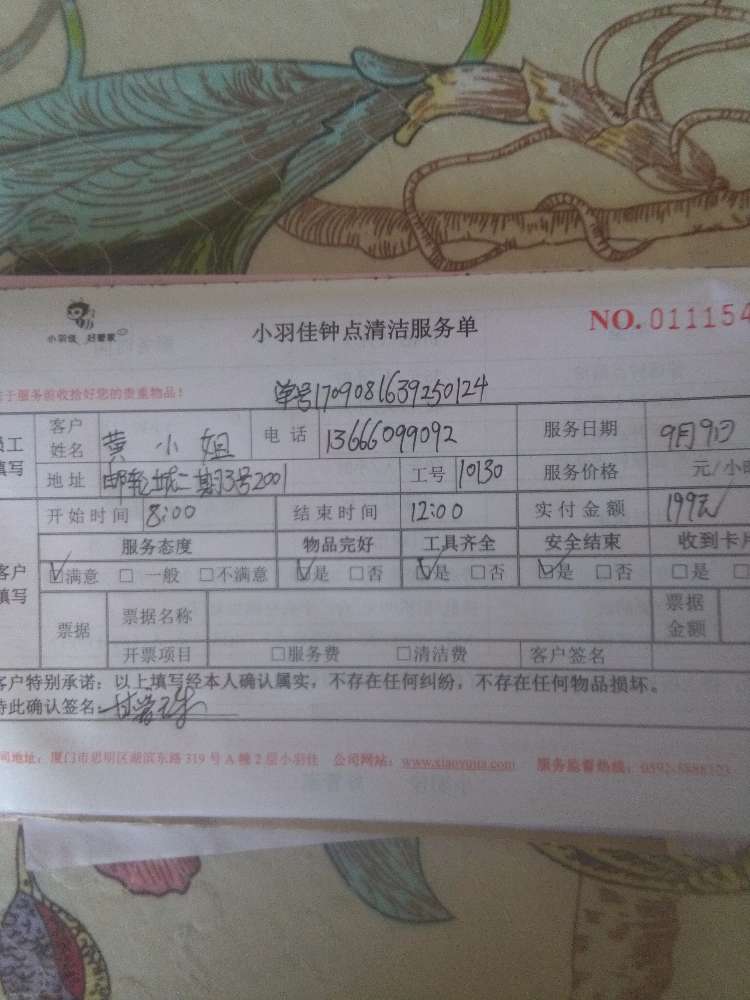 小羽佳 好管家
小羽佳钟点清洁服务单
NO. 011154
于服务前收拾好您的贵重物品！
单号1709081639250124
员工填写
客户姓名 黄小姐 电话 13666099092 服务日期 9月9日
地址 邮轮城二期3号2001 工号 10130 服务价格 元/小时
开始时间 8:00 结束时间 12:00 实付金额 199元
客户填写
服务态度 物品完好 工具齐全 安全结束 收到卡片
☑满意 □一般 □不满意 ☑是 □否 ☑是 □否 ☑是 □否 □是
票据 票据名称 票据金额
开票项目 □服务费 □清洁费 客户签名
客户特别承诺：以上填写经本人确认属实，不存在任何纠纷，不存在任何物品损坏。
特此确认签名：
公司地址：厦门市思明区湖滨东路319号A幢2层小羽佳 公司网站：www.xiaoyujia.com 服务监督热线：0592-